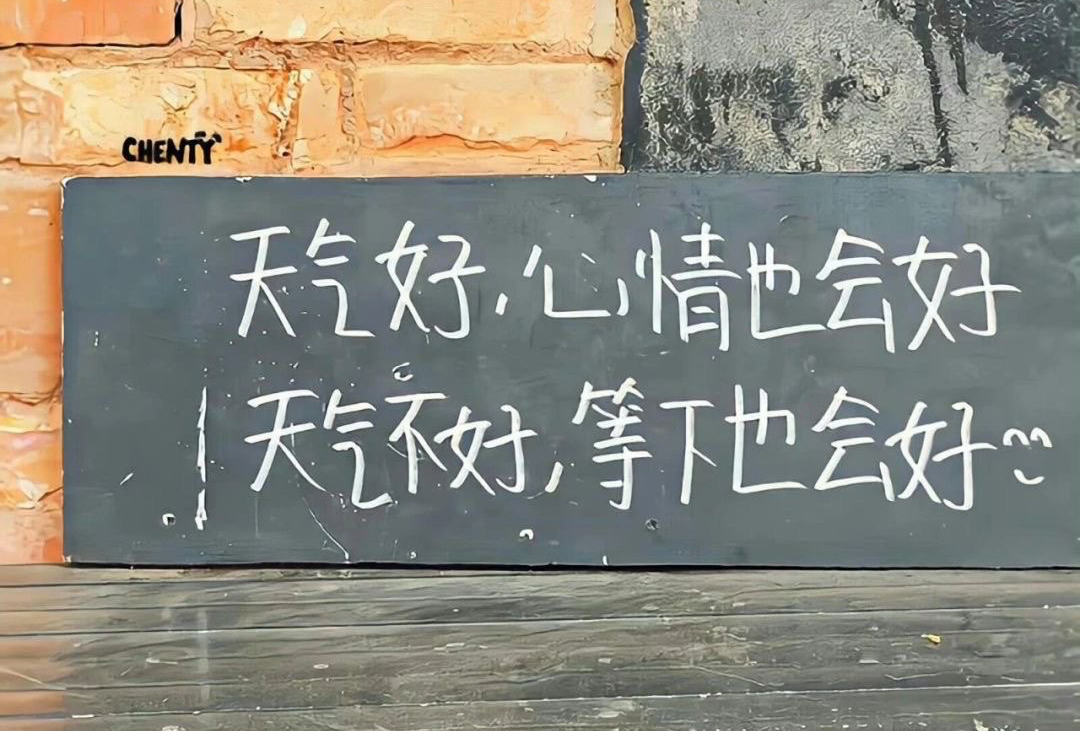 CHENTY
天气好,心情也会好
天气不好,等下也会好